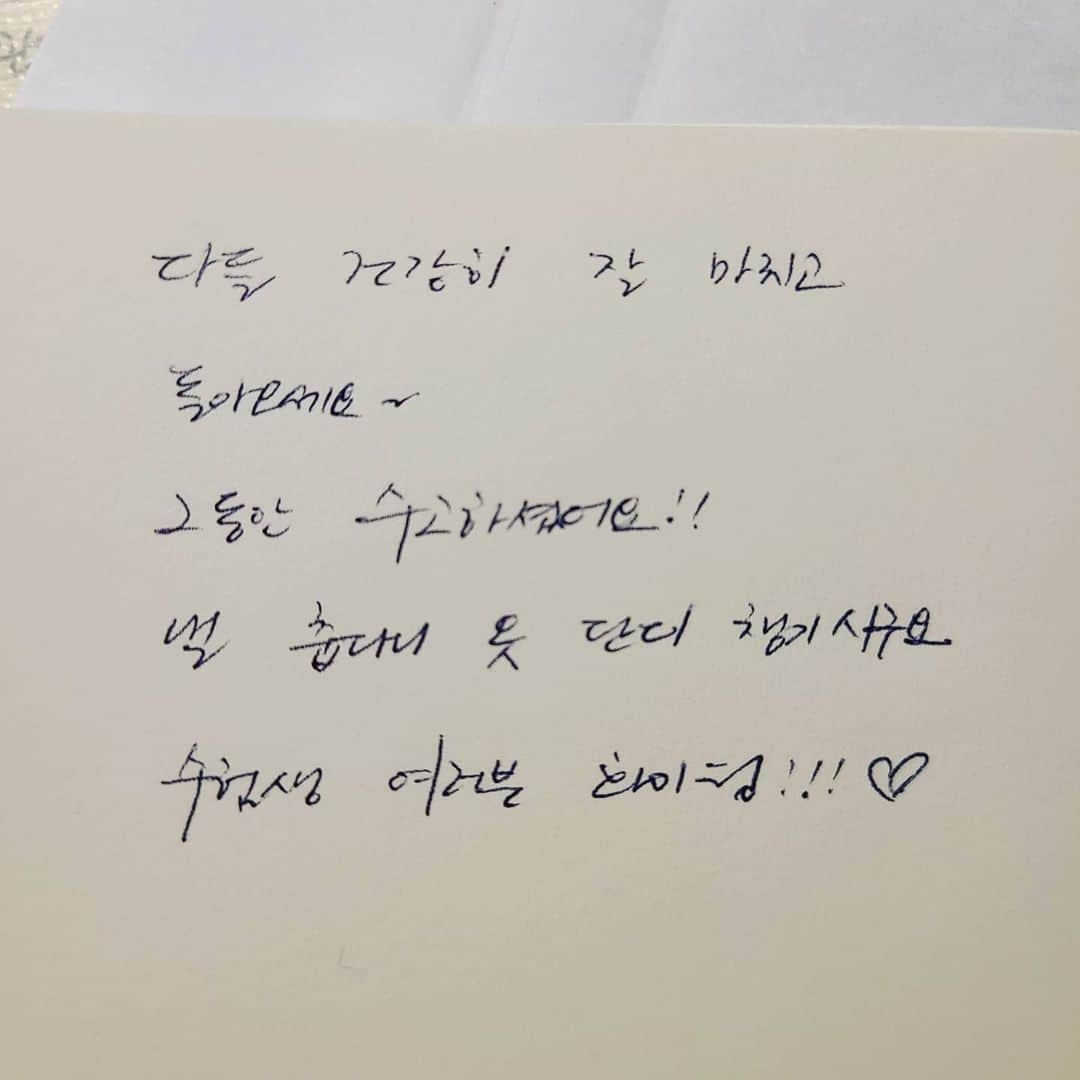 다들 건강히 잘 마치고
돌아오세요~
그동안 수고하셨어요!!
춥다니 옷 단디 챙기시구요
수험생 여러분 화이팅!!!♡